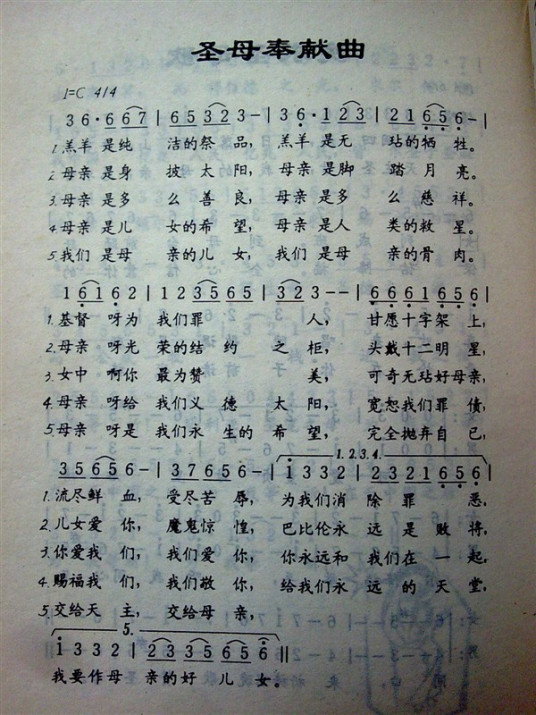 圣母奉献曲
1=C 4/4
3 6·667 | 65323- | 36·123 | 21656-|
1.羔羊 是纯 洁的祭品, 羔羊 是无 玷的牺牲。
2.母亲 是身 披太阳, 母亲 是脚 踏月亮。
3.母亲 是多 么善良, 母亲 是多 么慈祥。
4.母亲 是儿 女的希望, 母亲 是人 类的救星。
5.我们 是母 亲的儿女, 我们 是母 亲的骨肉。
1 6162 | 123565 | 323-- | 6661656 |
1.基督 呀为 我们罪 人, 甘愿十字架上,
2.母亲 呀光 荣的结约 之柜, 头戴十二明星
3.女中 啊你 最为赞 美, 可奇无玷好母亲,
4.母亲 呀给 我们义德 太阳, 宽恕我们罪债,
5.母亲 呀是 我们永生的 希望, 完全抛弃自己,
1.2.3.4.
35656- | 37656- | i332 | 2321656 |
1.流尽鲜血, 受尽苦辱, 为我们消 除罪恶,
2.儿女爱你, 魔鬼惊惶, 巴比伦永 远是败将,
3.你爱我们, 我们爱你, 你永远和 我们在一起,
4.赐福我们, 我们敬你, 给我们永 远的天堂,
5.交给天主, 交给母亲,
5.
i332 | 2353656 ||
我要作母 亲的好儿女。